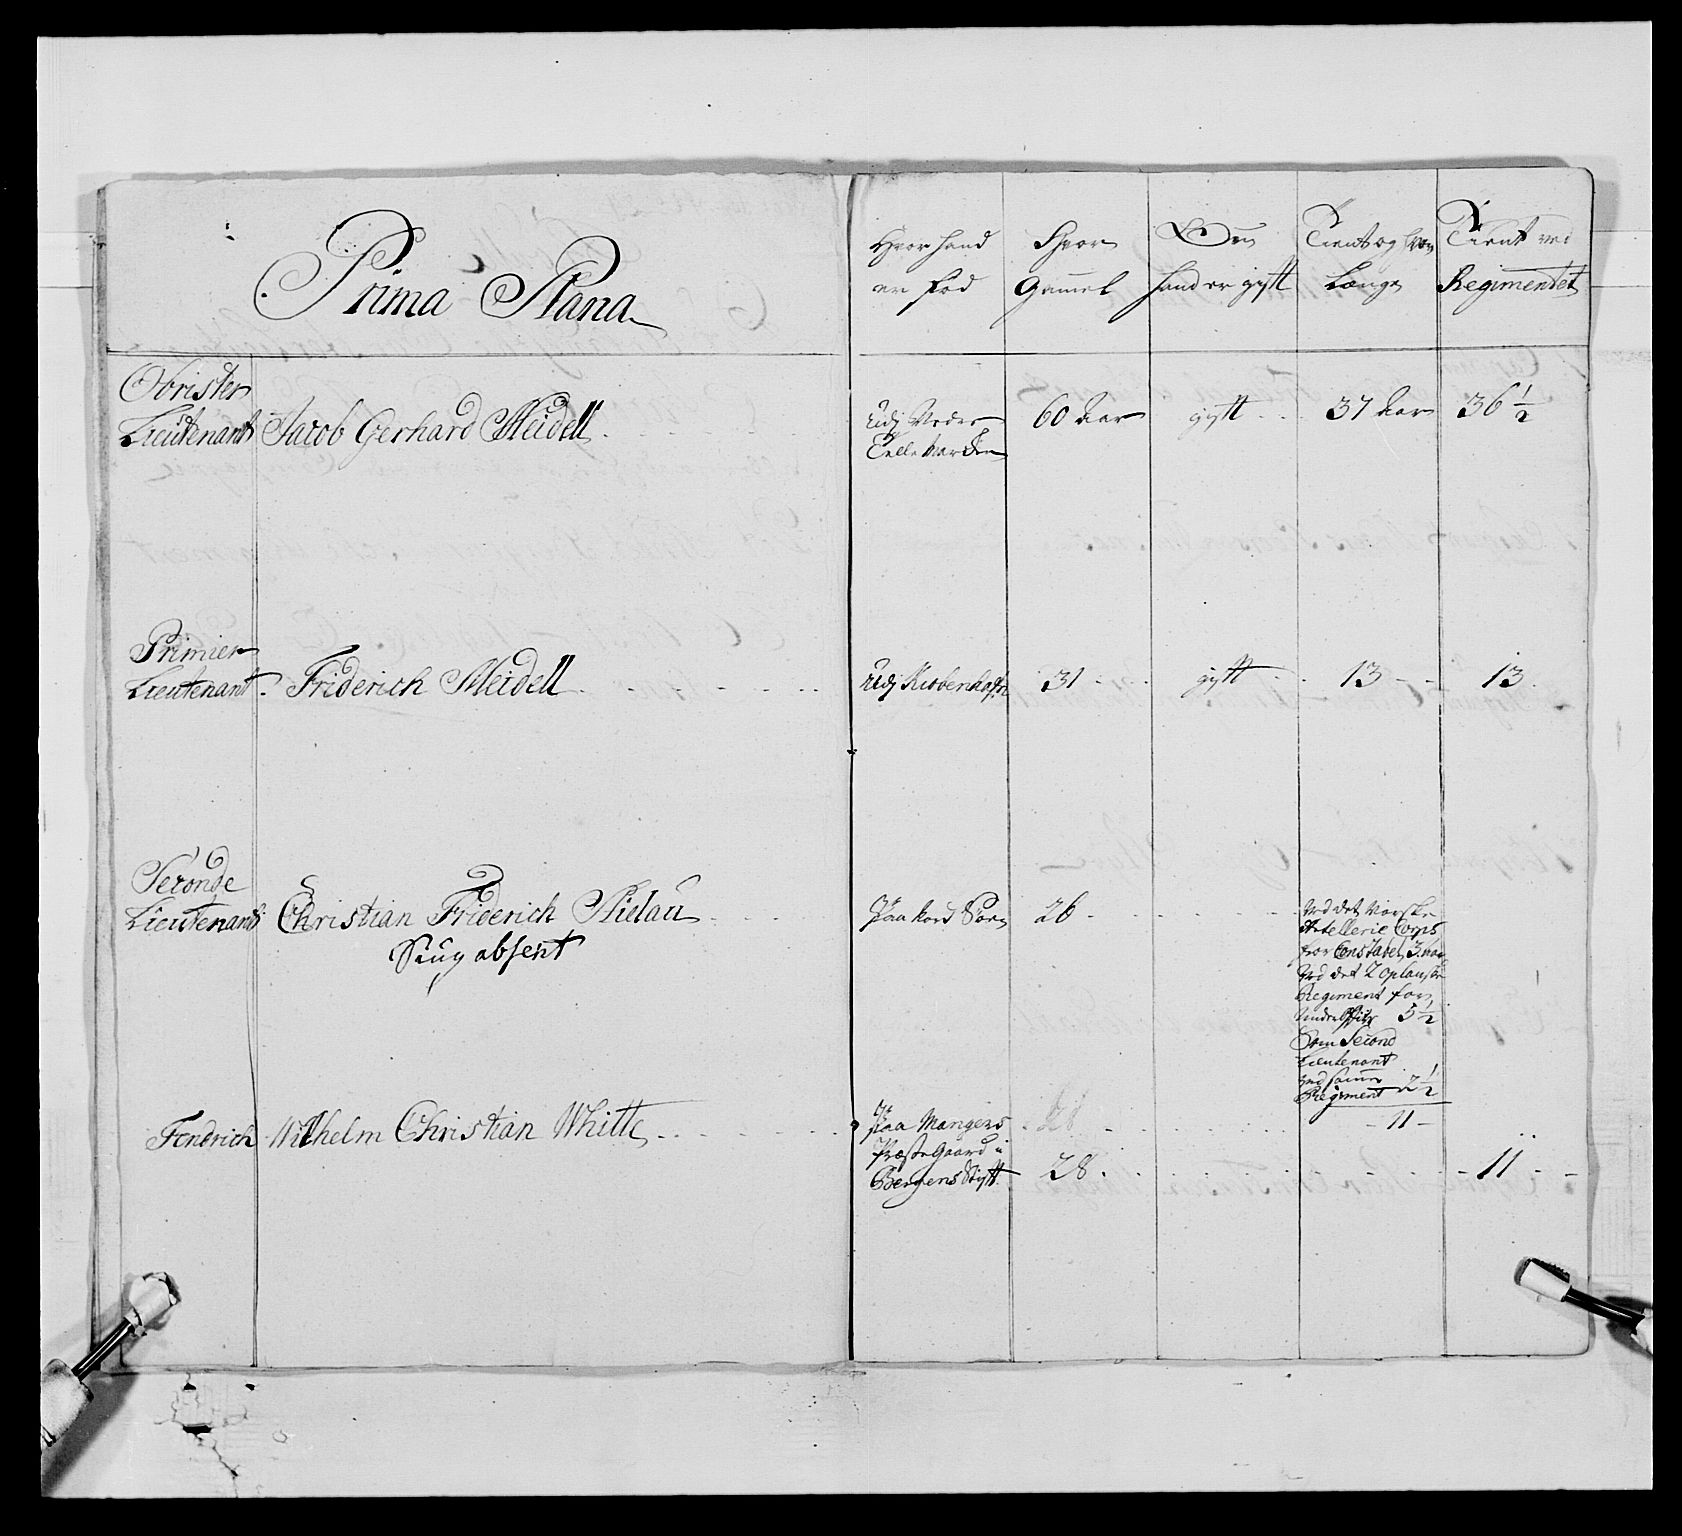 Prima Plana
Hvor hand er Fød
Hvor Gammel
Om hand er gift
Tient og hvor Længe
Tient ved Regimentet
Obrister Lieutenant Jacob Gerhard Meidell
udj Nedre Tellemarken
60 Aar
gift
37 Aar
36 1/2
Primier Lieutenant Friderich Meidell
udj Kiøbenhafn
31
gift
13
13
Seconde Lieutenant Christian Friderich Nielau
Siug absent
Paa Kors Søer
26
Ved det Norske
Artellerie Corps
for Constabel 3 aar
Ved det 2 oplanske
Regiment for
underofficer 5 1/2
Som Second
Lieutenant
ved samme
Regiment 2 1/2
11
Fendrich Wilhelm Christian Whitte
Paa Mangers
Præste Gaard i
Bergens Stift
28
28
11